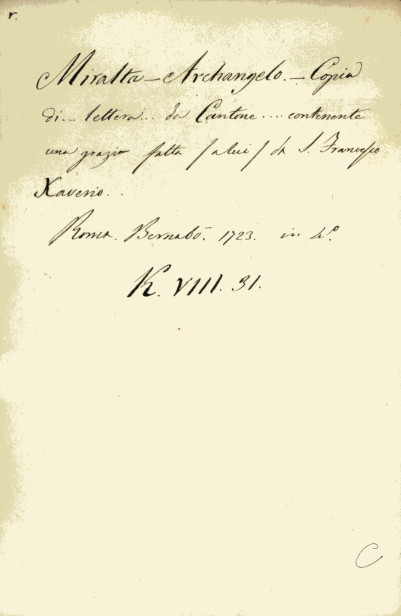 r.
Miralta – Archangelo. – Copia
di... lettera... da Cantone.... contenente
una grazia fatta /a lui/ da S. Francesco
Xaverio...
Roma. Bernabò. 1723. in 4.º
K. VIII. 31.
C